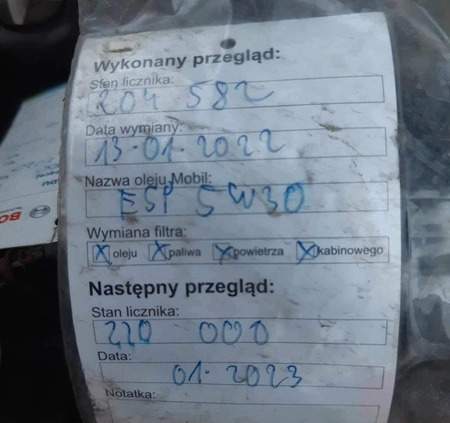 Wykonany przegląd:
Stan licznika:
204 582
Data wymiany:
13-01-2022
Nazwa oleju Mobil:
ESP 5W30
Wymiana filtra:
X oleju X paliwa X powietrza X kabinowego
Następny przegląd:
Stan licznika:
220 000
Data:
01-2023
Notatka: